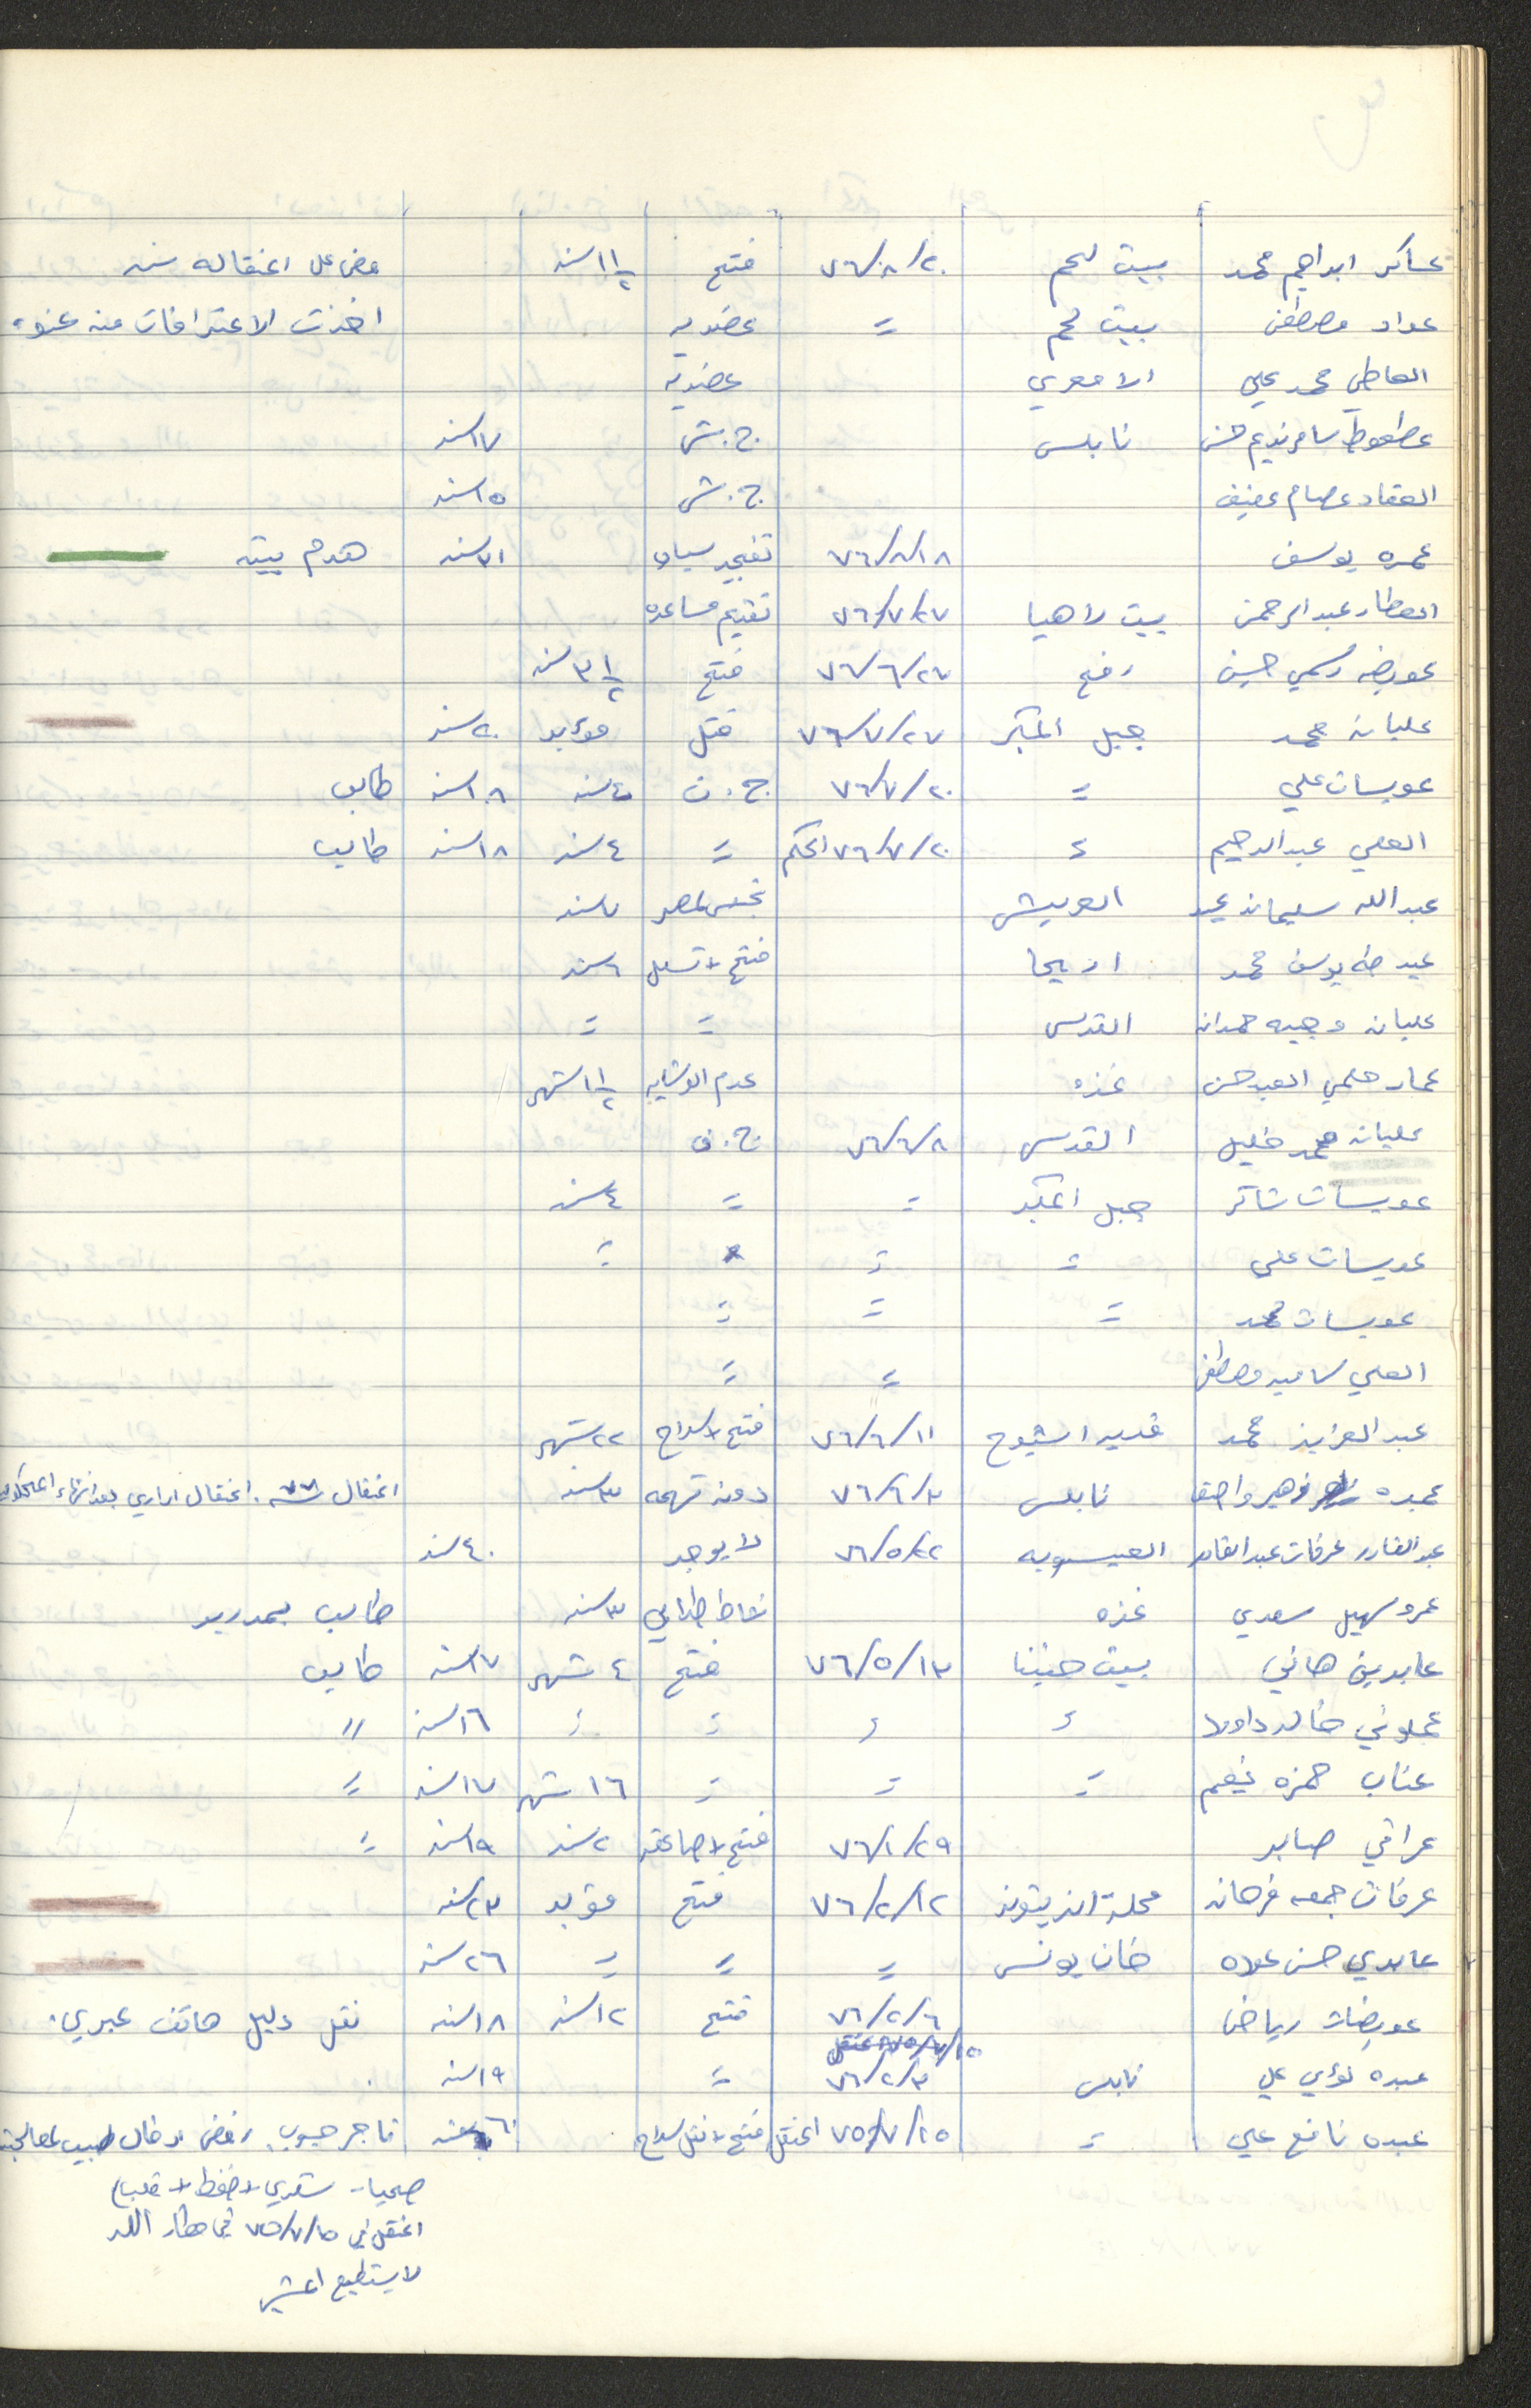 عساكر ابراهيم محمد بيت لحم ٧٦/٨/٢٠ فتح ١١/٢ سنه مضى على اعتقاله سنه
عواد مصطفى بيت لحم = عضويه اخذت الاعترافات منه عنوه
العاطي محمد علي الامعري عضويه
عطعوط سامر نديم حسن نابلس ج.ش ١٧ سنه
العقاد عصام عفيف ج.ش ١٥ سنه
عمره يوسف ٧٦/٨/١٨ تفجير سياره ٣١ سنه هدم بيته
العطار عبد الرحمن بيت لاهيا ٧٦/٧/٢٧ تقديم مساعده
عويضه رسمي حسين رفح ٧٦/٦/٢٧ فتح ٣١/٢ سنه
عليان محمد جبل المكبر ٧٦/٧/٢٧ قتل مؤبد ٢٠ سنه
عويسات علي = ٧٦/٧/٢٠ ج.ف ٤٥ سنه ١٨ سنه طالب
العلي عبد الرحيم = ٧٦/٧/٢٠ الحكم = ٤ سنه ١٨ سنه طالب
عبد الله سليمان عيد العريش تجسس لمصر ٧ سنه
عيد طه يوسف محمد اريحا فتح + تسلل ٦ سنه
عليان وجيه حمدان القدس = =
عمار حلمي العبد حسن غزه عدم الوشايه ١١/٢ شهر
عليان محمد خليل القدس ٧٦/٦/٨ ج.ف
عويسات شاكر جبل المكبر = = ٤ سنه
عويسات علي = = =
عويسات محمد = = =
العلي سامير مصطفى = =
عبد العزيز محمد قرية الشيوخ ٧٦/٦/١١ فتح + سلاح ٢٢ شهر
عبده زهير واصف نابلس ٧٦/٦/٣ دون تهمه ٣ سنه اعتقال ٧٧ . اعتقال اداري بعد انتهاء المحكوميه
عبد القادر عرفات عبد القادر العيسويه ٧٦/٥/٢٢ لا يوجد ٤٠ سنه
عمرو سهيل سعدي غزه نشاط طلابي ٣ سنه طالب بمدريد
عابدين هاني بيت حنينا ٧٦/٥/١٣ فتح ٤ شهر ١٧ سنه طالب
عجلوني خالد داوود = = = = ١٦ سنه "
عناب حمزه نعيم = = = ١٦ شهر ١٧ سنه =
عراقي صابر ٧٦/١/٢٩ فتح + صاعقه ٢ سنه ١٩ سنه =
عرفات جمعه فرحان محلة الزيتون ٧٦/٢/١٢ فتح مؤبد ٢٣ سنه
عابدي حسن عوده خان يونس = = = ٢٦ سنه
عويضات رياض ٧٦/٢/٦ فتح ١٢ سنه ١٨ سنه نقل دليل هاتف عبري.
عبده لؤي علي نابلس ٧٦/٢/٣ = ١٩ سنه
عبده نافع علي = ٧٥/٧/١٥ اعتقل فتح + نقل سلاح ٦٠ سنه تاجر حبوب. رفض ادخال طبيب لمعالجته
صحيا - سكري + ضغط + قلب
اعتقل في ٧٥/٧/١٥ في مطار اللد
لا يستطيع المشي